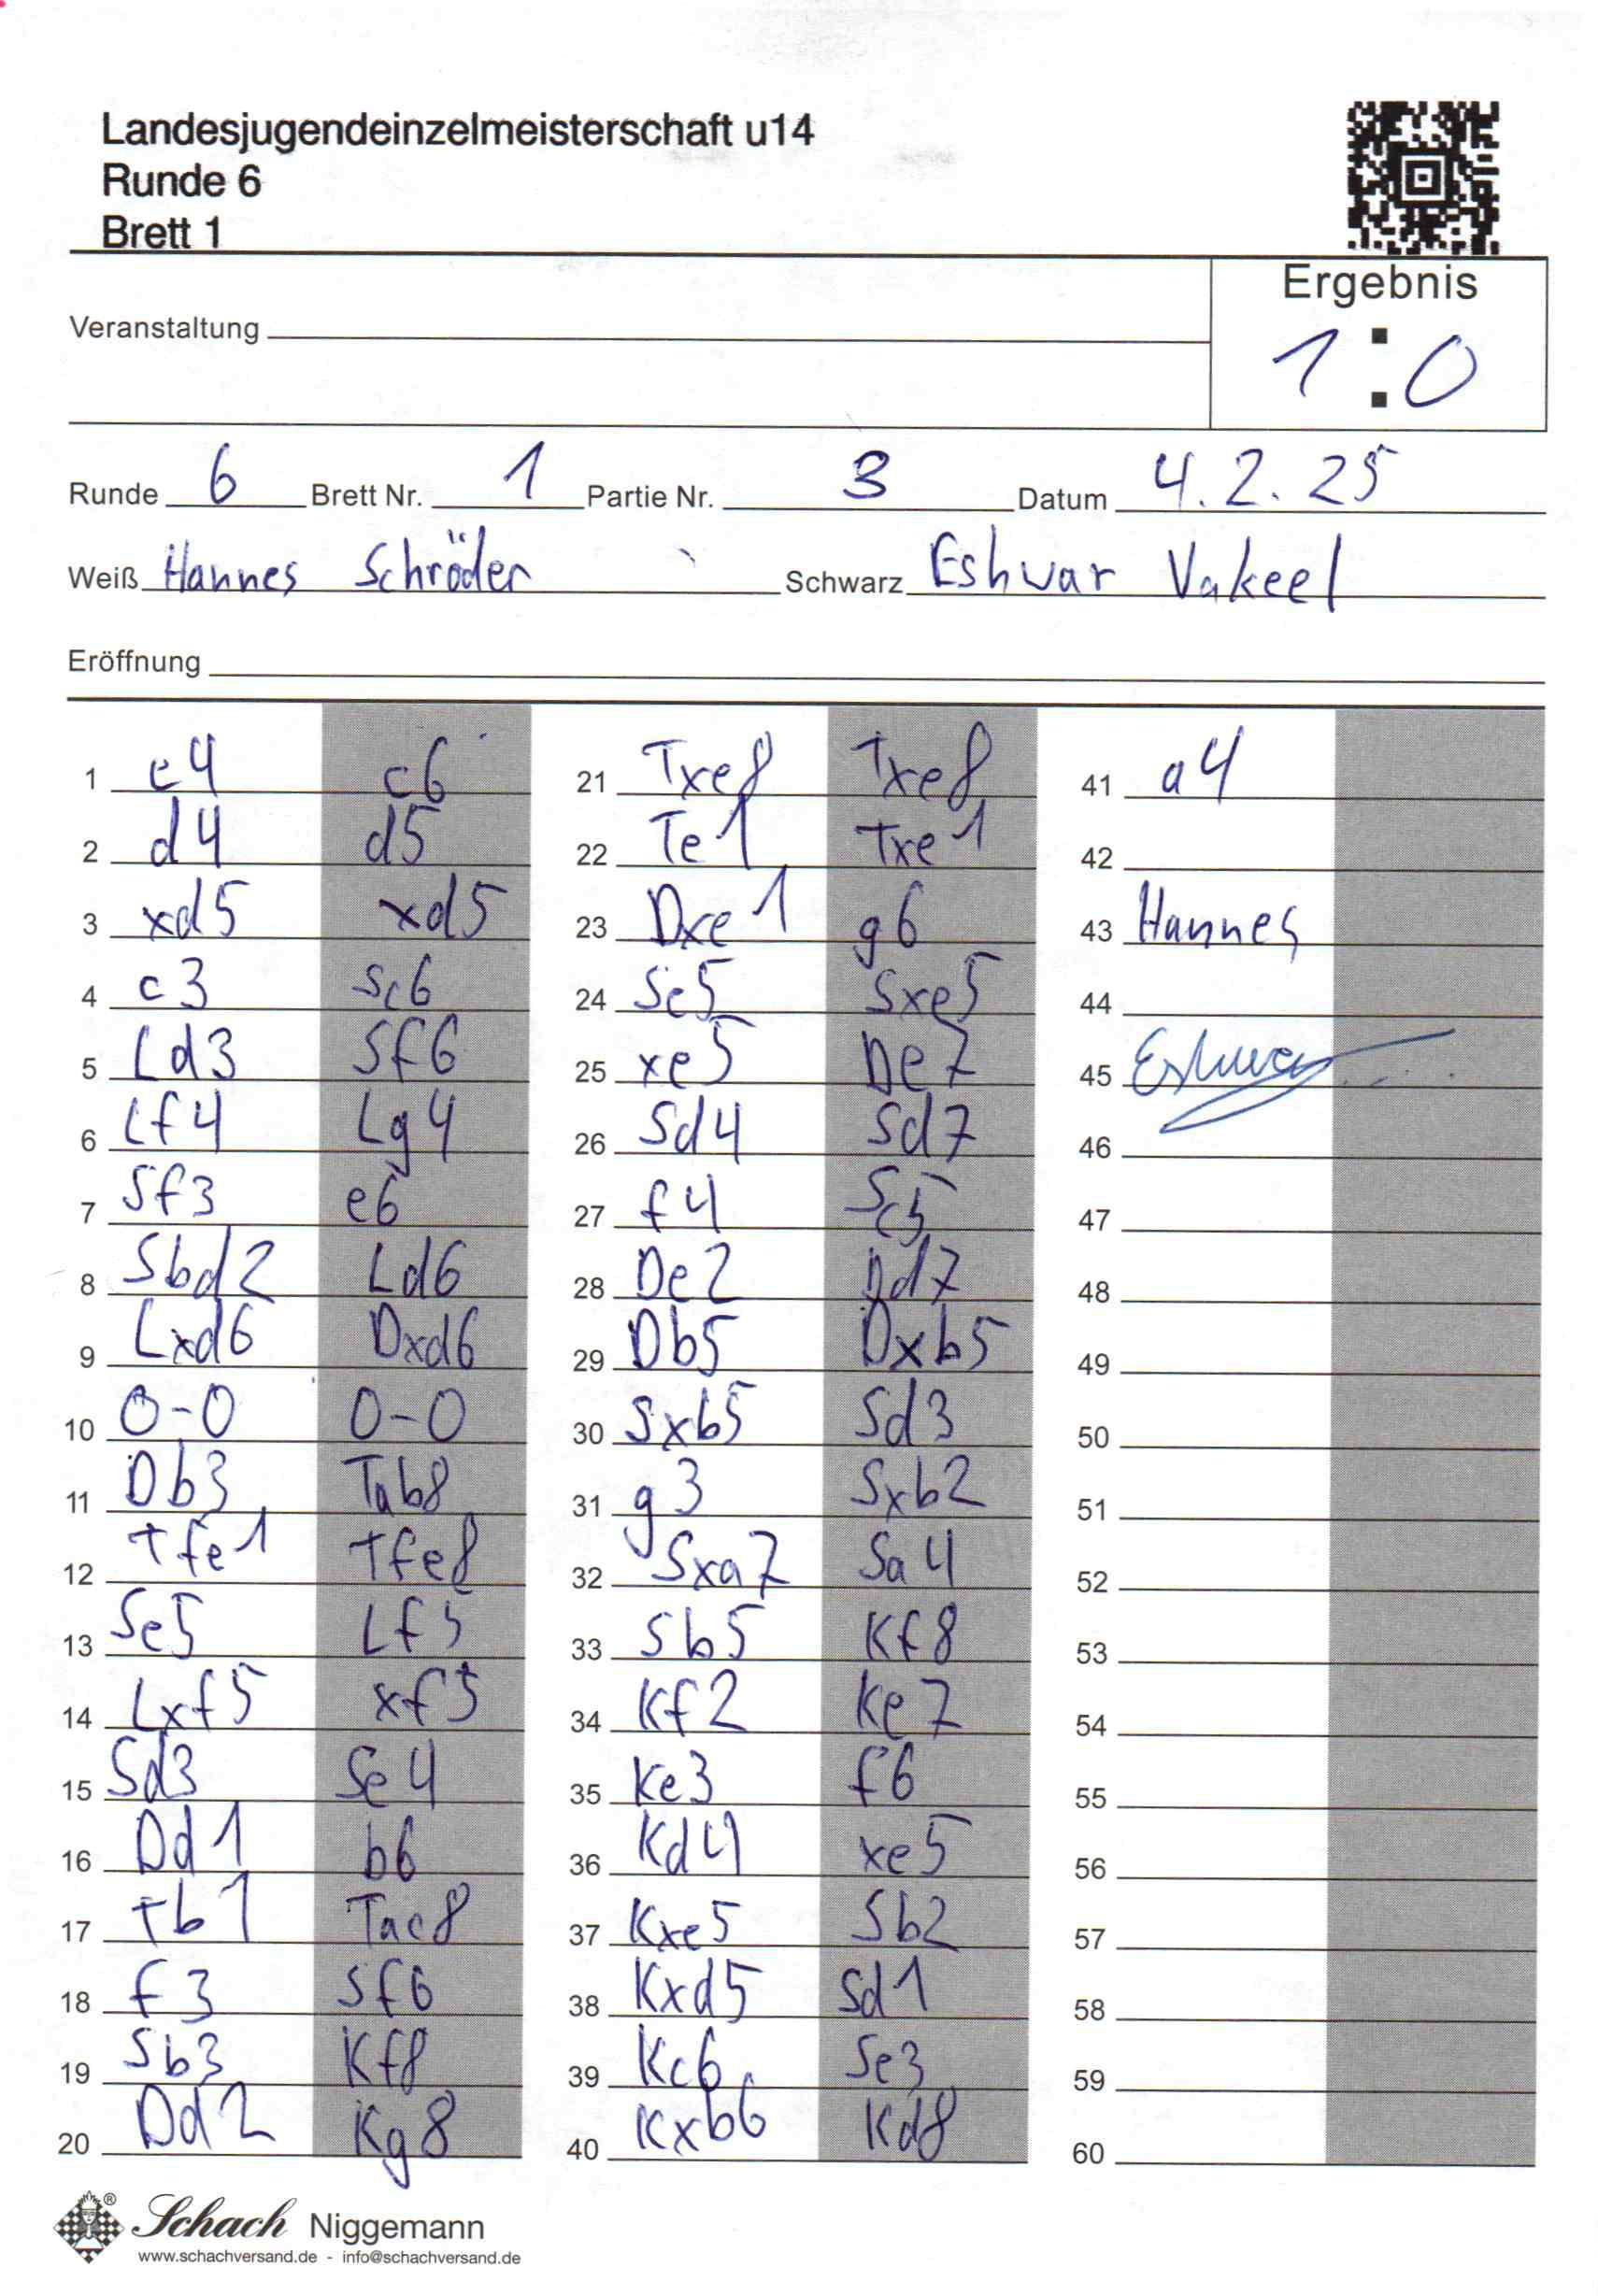 Landesjugendeinzelmeisterschaft u14
Runde 6
Brett 1
Ergebnis
Veranstaltung
1:0
Runde 6 Brett Nr. 1 Partie Nr. 3 Datum 4.2.25
Weiß Hannes Schröder Schwarz Eshwar Vakeel
Eröffnung
1 e4 c6
2 d4 d5
3 xd5 xd5
4 c3 Sc6
5 Ld3 Sf6
6 Lf4 Lg4
7 Sf3 e6
8 Sbd2 Ld6
9 Lxd6 Dxd6
10 0-0 0-0
11 Db3 Tab8
12 Tfe1 Tfe8
13 Se5 Lf5
14 Lxf5 xf5
15 Sd3 Se4
16 Dd1 b6
17 Tb1 Tac8
18 f3 Sf6
19 Sb3 Kf8
20 Dd2 Kg8
21 Txe8 Txe8
22 Te1 Txe1
23 Dxe1 g6
24 Se5 Sxe5
25 xe5 De7
26 Sd4 Sd7
27 f4 Sc5
28 De2 Dd7
29 Db5 Dxb5
30 Sxb5 Sd3
31 g3 Sxb2
32 Sxa7 Sa4
33 Sb5 Kf8
34 Kf2 Ke7
35 Ke3 f6
36 Kd4 xe5
37 Kxe5 Sb2
38 Kxd5 Sd1
39 Kc6 Se3
40 Kxb6 Kd8
41 a4
42
43 Hannes
44
45 Eshwar
46
47
48
49
50
51
52
53
54
55
56
57
58
59
60
Schach Niggemann
www.schachversand.de - info@schachversand.de